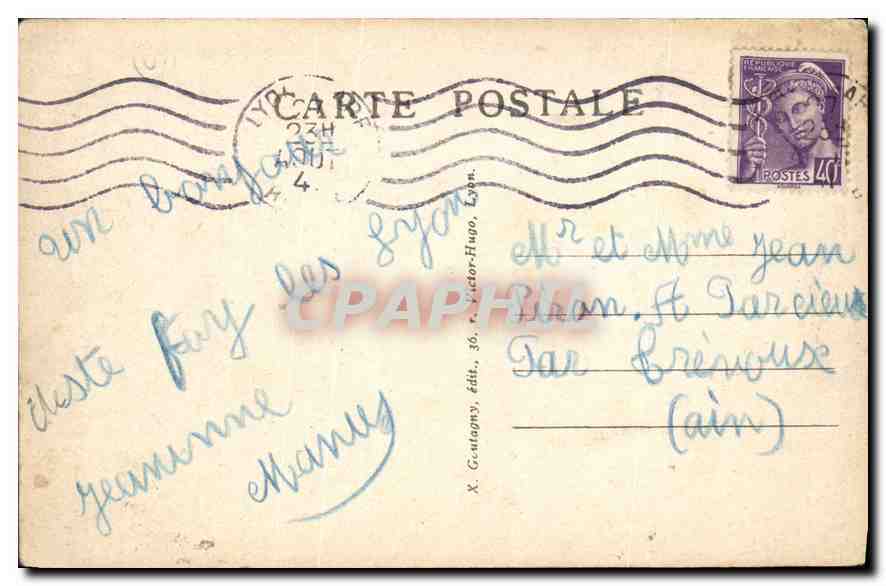 CARTE POSTALE
LYON GARE
23H
4
RÉPUBLIQUE
FRANÇAISE
POSTES 40F
un bonjour
des Lyon
Foy les
Juste
Jeaninne
Manus
X. Goutagny, édit., 36, r. Victor-Hugo, Lyon.
Mr et Mme Jean
Piron. A Parcieux
Par Trévoux
(ain)
CPAPHIL